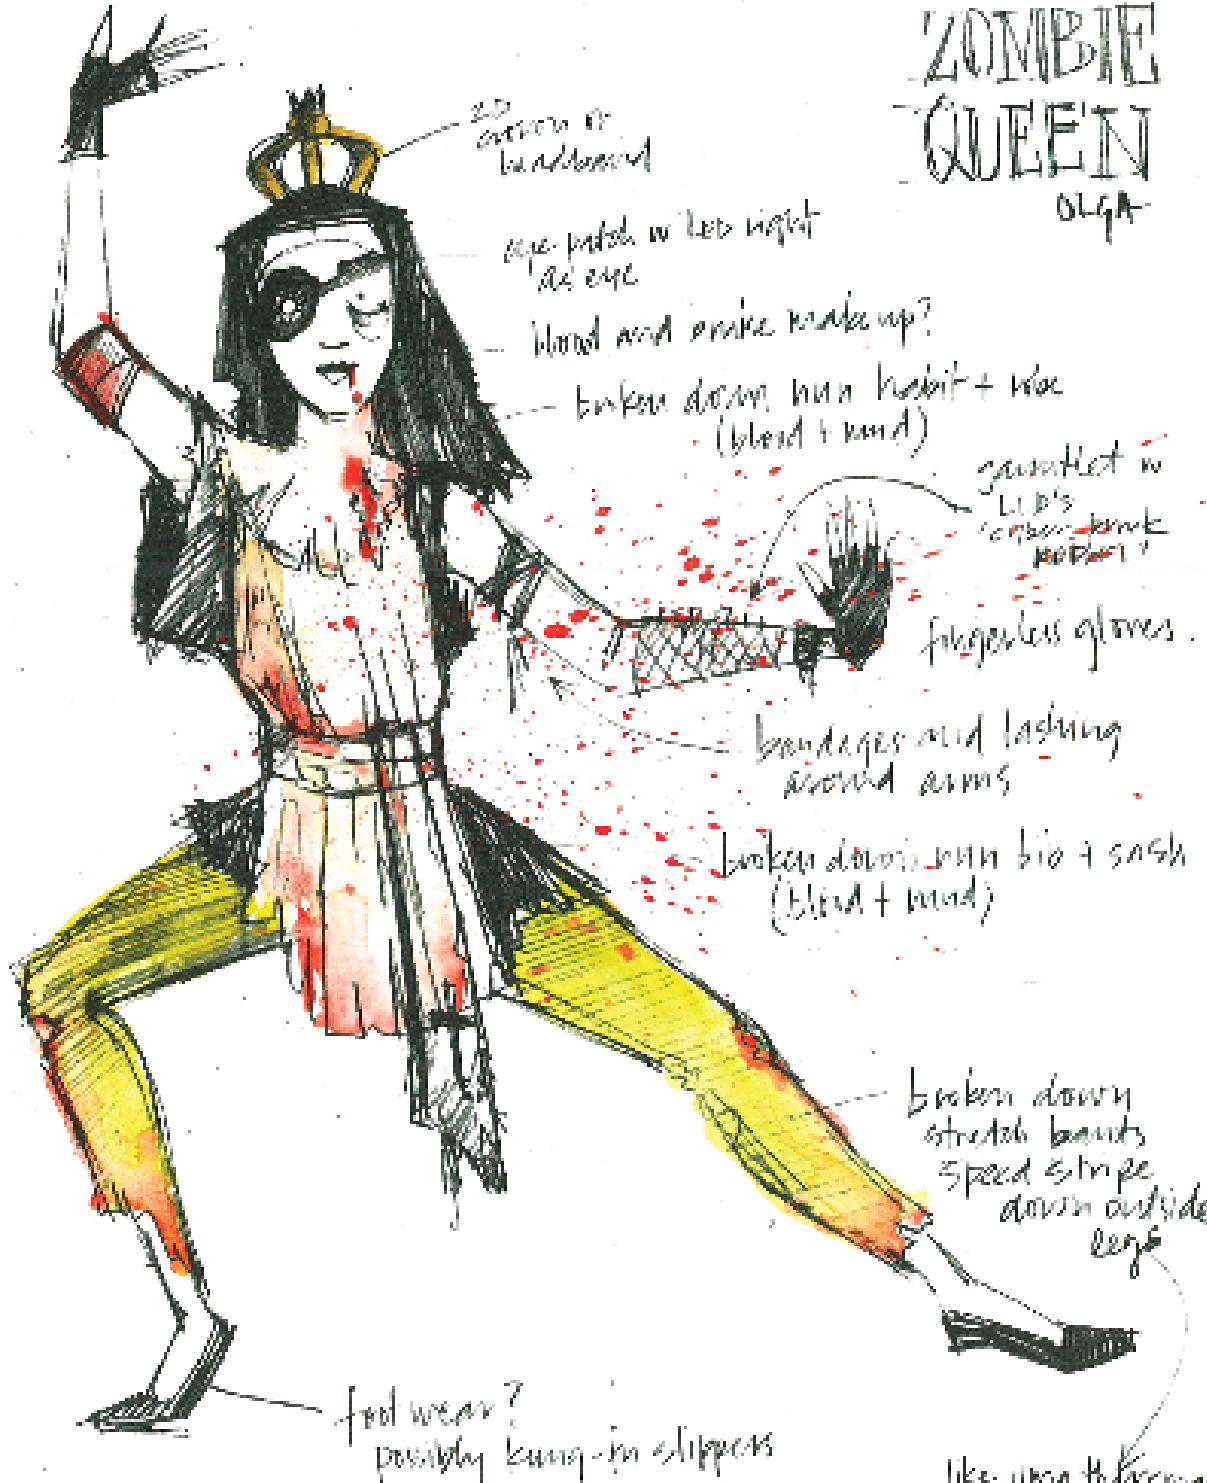 ZOMBIE
QUEEN
OLGA
2D
crown on
headband
eye patch w LED right
as eye
blood and bruise make up?
broken down nun habit + robe
(blood + mud)
gauntlet w
LED's
fingerless gloves.
bandages and lashing
around arms
broken down nun bib + sash
(blood + mud)
broken down
stretch pants
speed stripe
down outside
legs
footwear?
possibly kung-fu slippers
like uma thurman